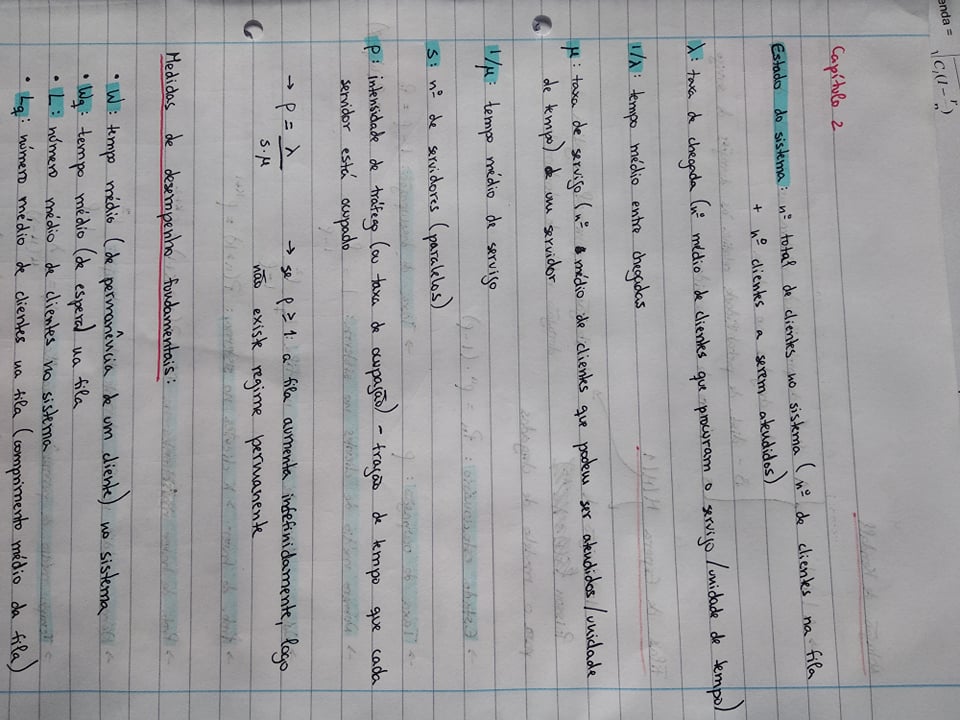 enda = √C₁(1-r/n)
Capítulo 2
Estado do sistema: nº total de clientes no sistema (nº de clientes na fila
+ nº clientes a serem atendidos)
λ: taxa de chegada (nº médio de clientes que procuram o serviço/unidade de tempo)
1/λ: tempo médio entre chegadas
μ: taxa de serviço (nº médio de clientes que podem ser atendidos/unidade
de tempo) de um servidor
1/μ: tempo médio de serviço
s: nº de servidores (paralelos)
ρ: intensidade de tráfego (ou taxa de ocupação) - fração de tempo que cada
servidor está ocupado
→ ρ = λ/s.μ → se ρ ≥ 1: a fila aumenta indefinidamente, logo
não existe regime permanente
Medidas de desempenho fundamentais:
• W: tempo médio (de permanência de um cliente) no sistema
• Wq: tempo médio (de espera) na fila
• L: número médio de clientes no sistema
• Lq: número médio de clientes na fila (comprimento médio da fila)